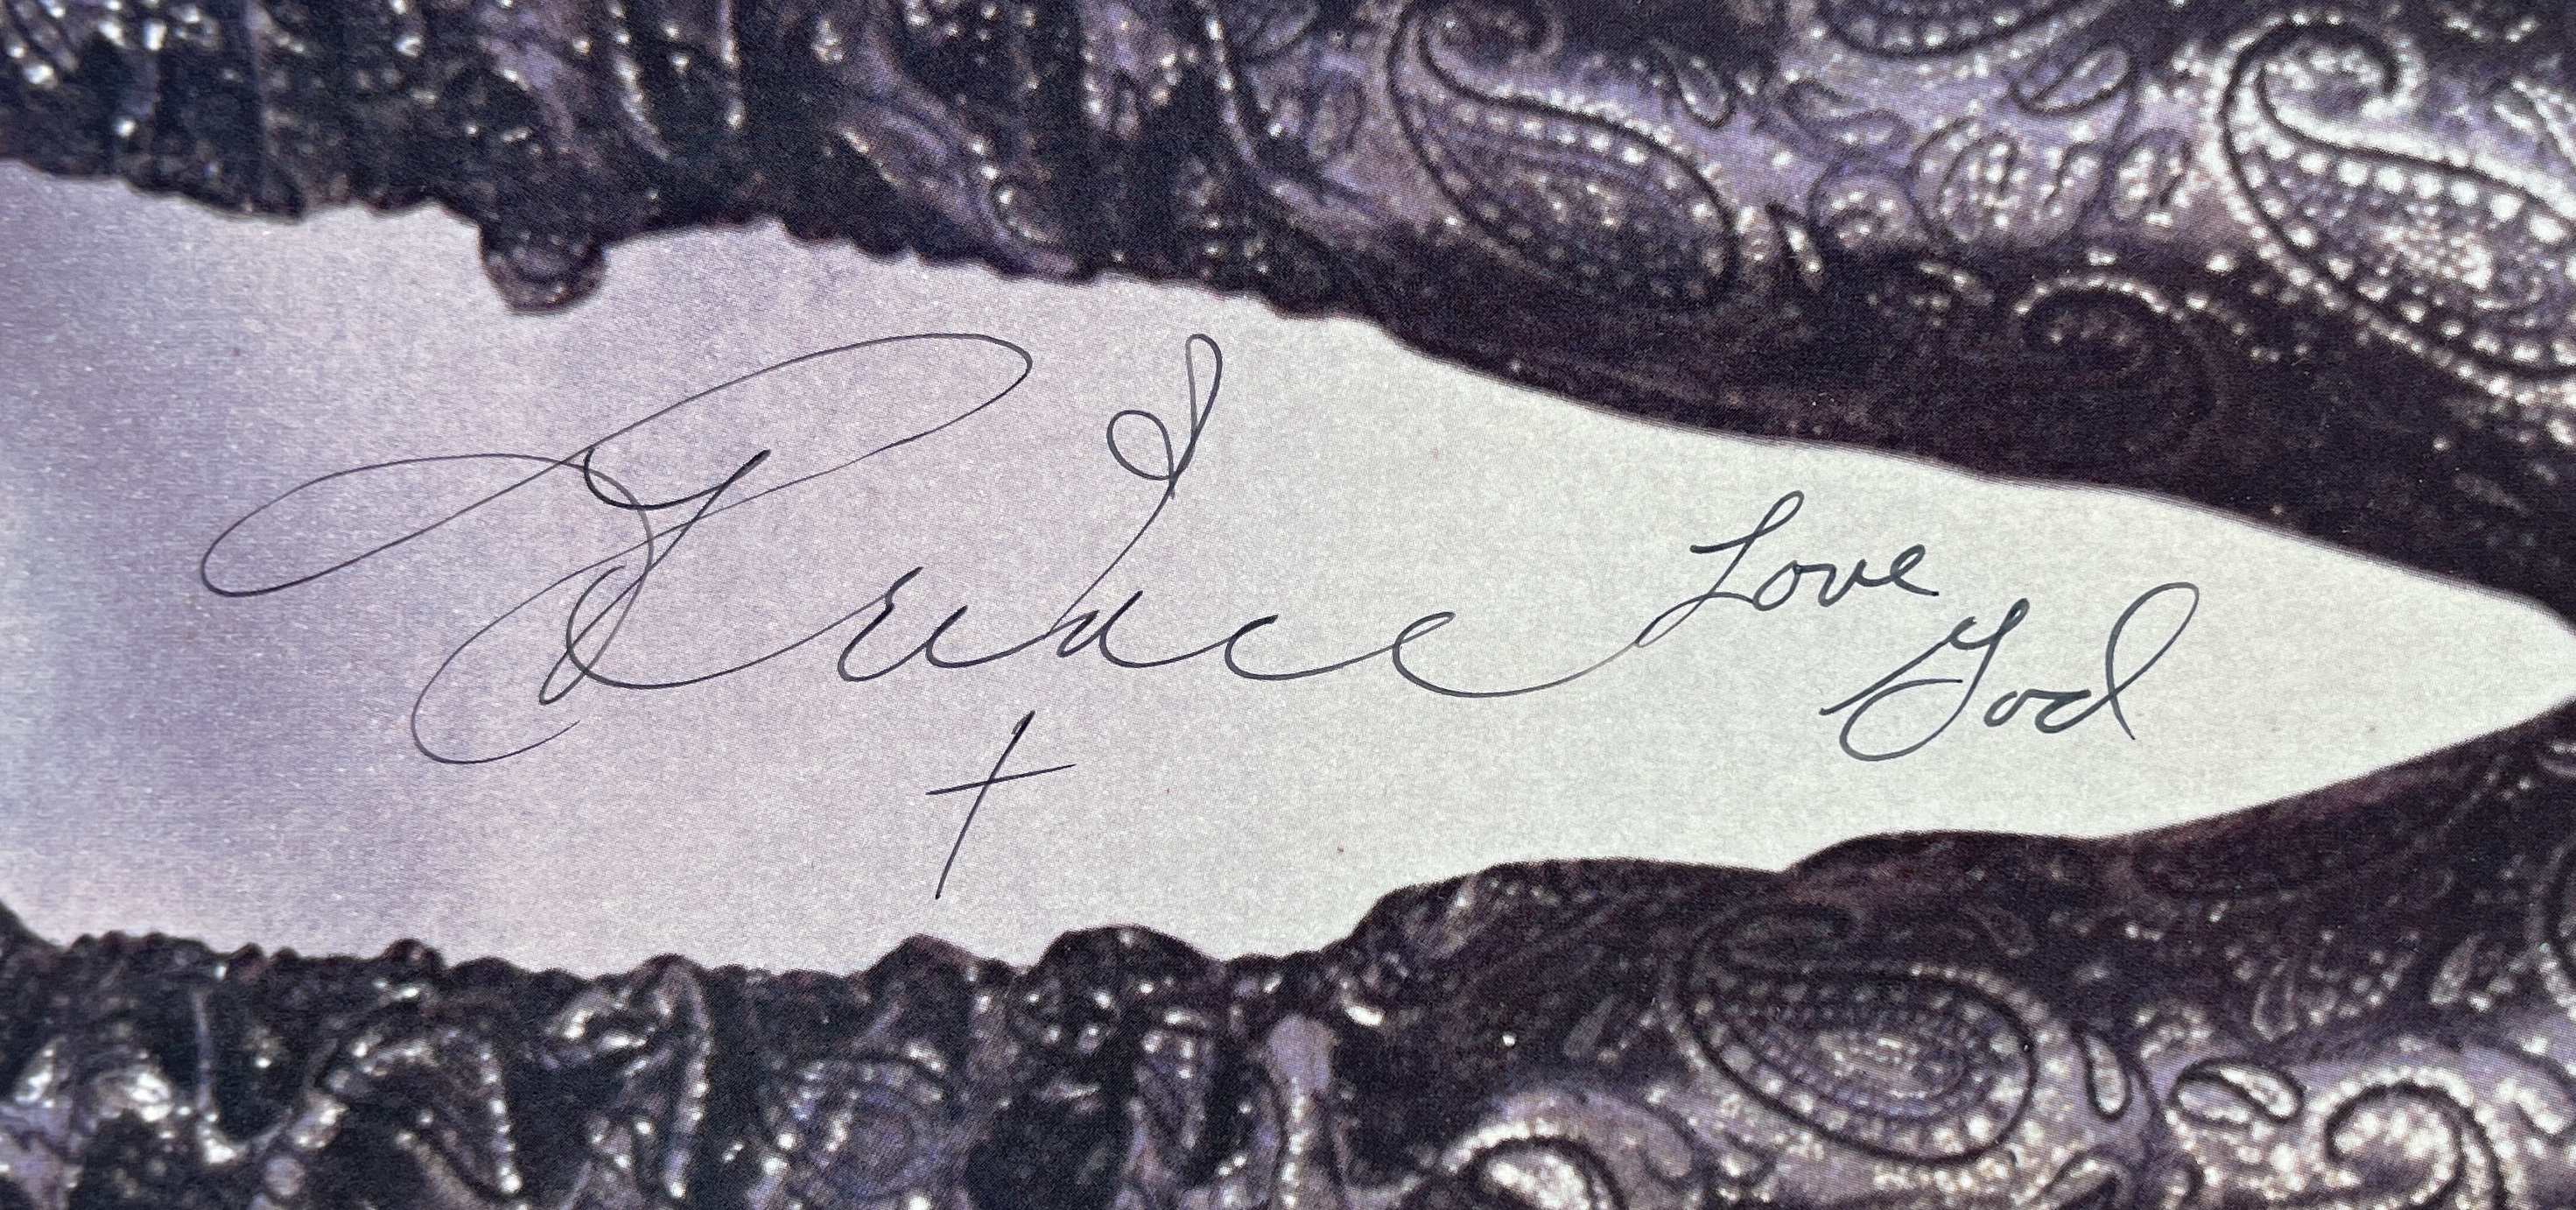 Prince
Love
God